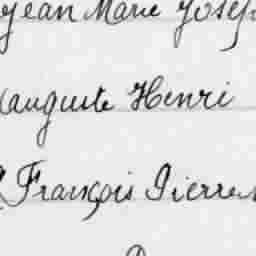 Jean Marie Joseph
Auguste Henri
François Pierre